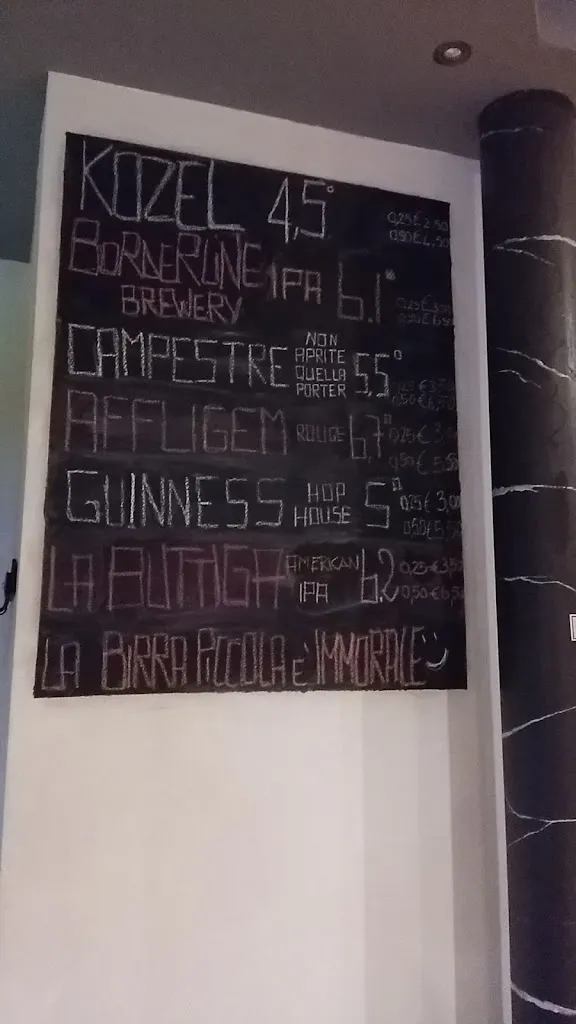 KOZEL 4,5° 0,25 € 2.50
0,50 € 4,50
BORDERLINE IPA 6.1°
BREWERY
0,50 € 6,50
CAMPESTRE NON APRITE QUELLA PORTER 5,5°
0,50 € 6,50
AFFLIGEM ROUGE 6,7° 0,25 € 3,00
0,50 € 5,50
GUINNESS HOP HOUSE 5° 0,25 € 3,00
0,50 € 5,50
LA BUTTIGA AMERICAN IPA 6.2 0,25 € 3,50
0,50 € 6,50
LA BIRRA PICCOLA E' IMMORALE